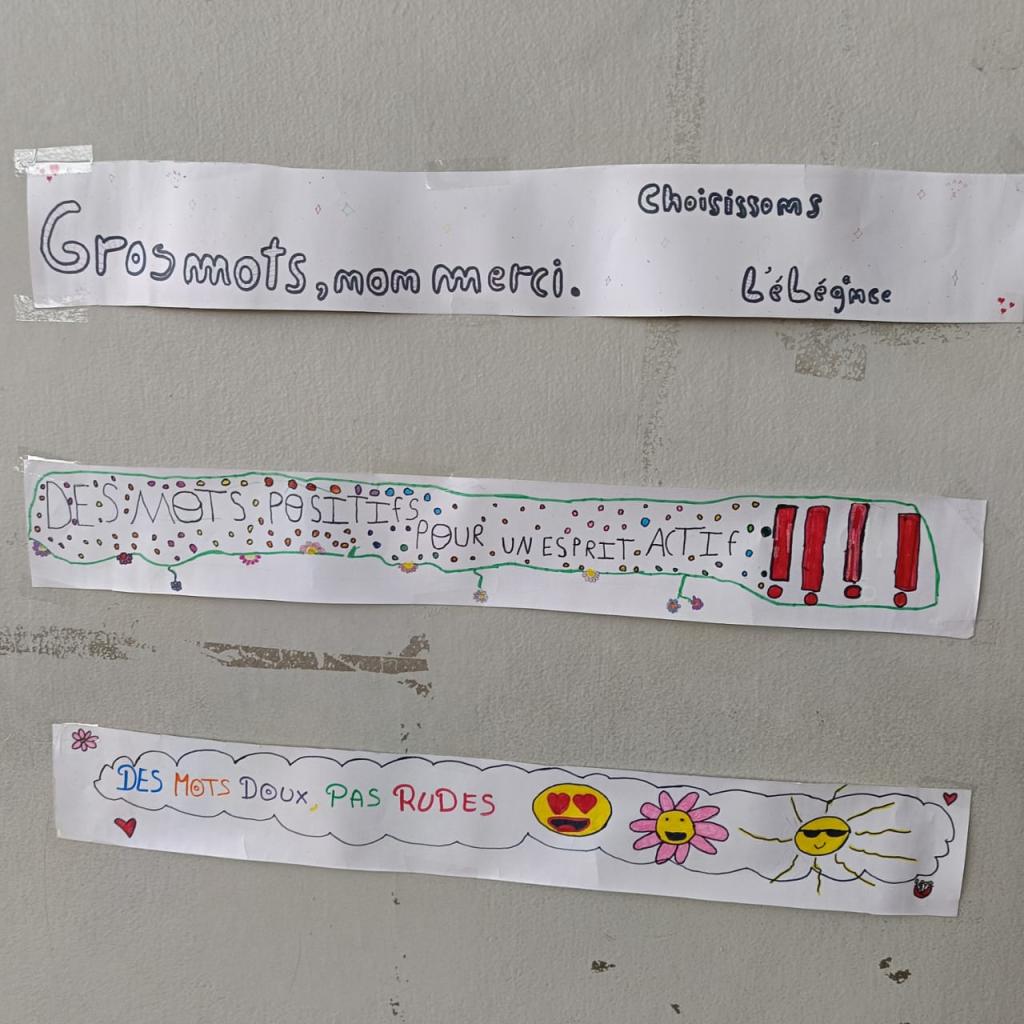 Gros mots, non merci.
Choisissons
L'élégance
DES MOTS POSITIFS POUR UN ESPRIT ACTIF !!!!
DES MOTS DOUX, PAS RUDES